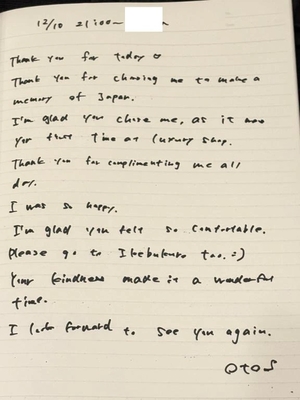 12/10 21:00~
Thank you for today
Thank you for choosing me to make a
memory of Japan.
I'm glad you chose me, as it was
your first time at luxury shop.
Thank you for complimenting me all
day.
I was so happy.
I'm glad you felt so comfortable.
Please go to Ikebukuro too. :)
Your kindness made it a wonderful
time.
I look forward to see you again.